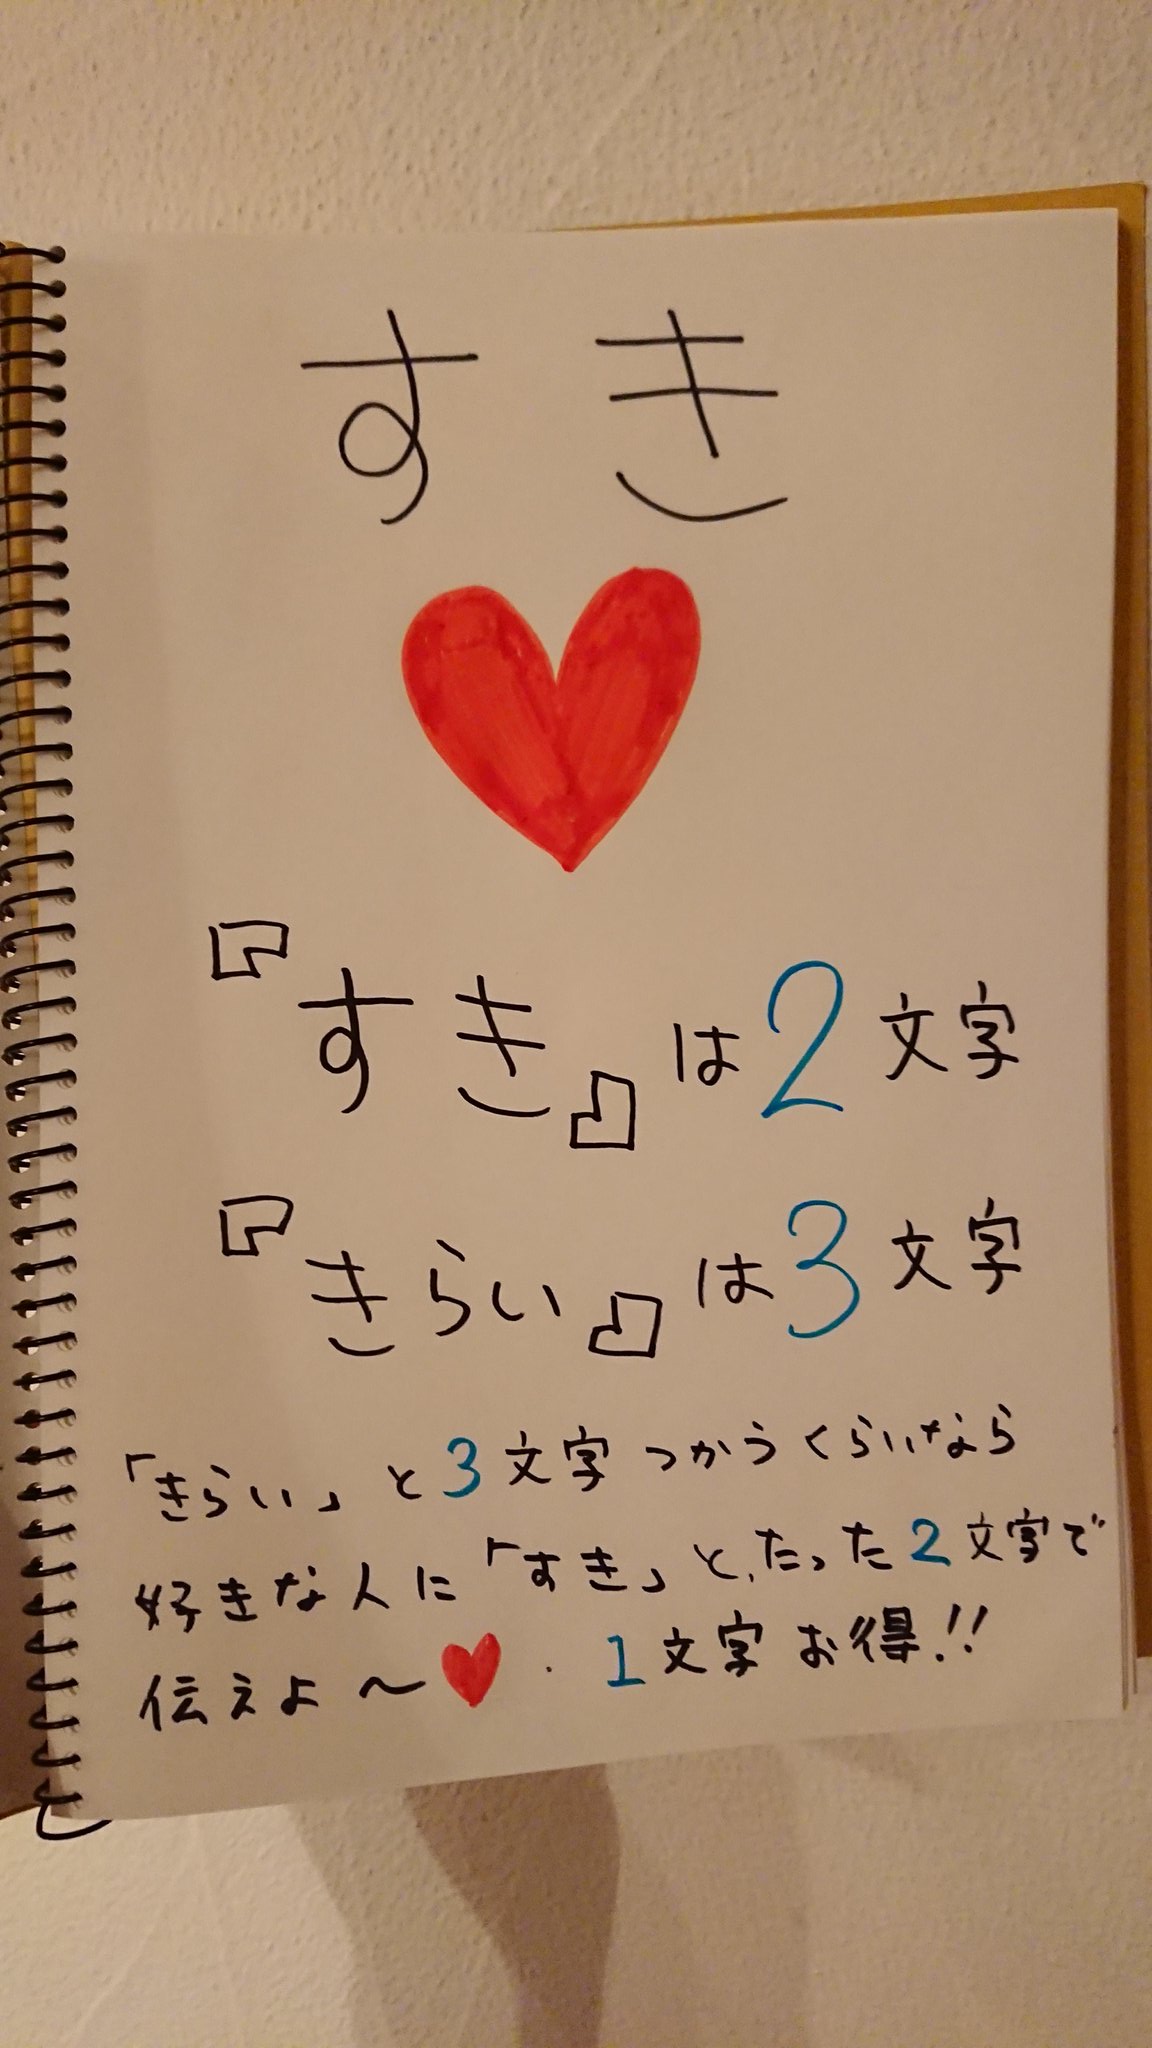 すき
『すき』は2文字
『きらい』は3文字
「きらい」と3文字つかうくらいなら
好きな人に「すき」と、たった2文字で
伝えよ〜♥・1文字お得!!